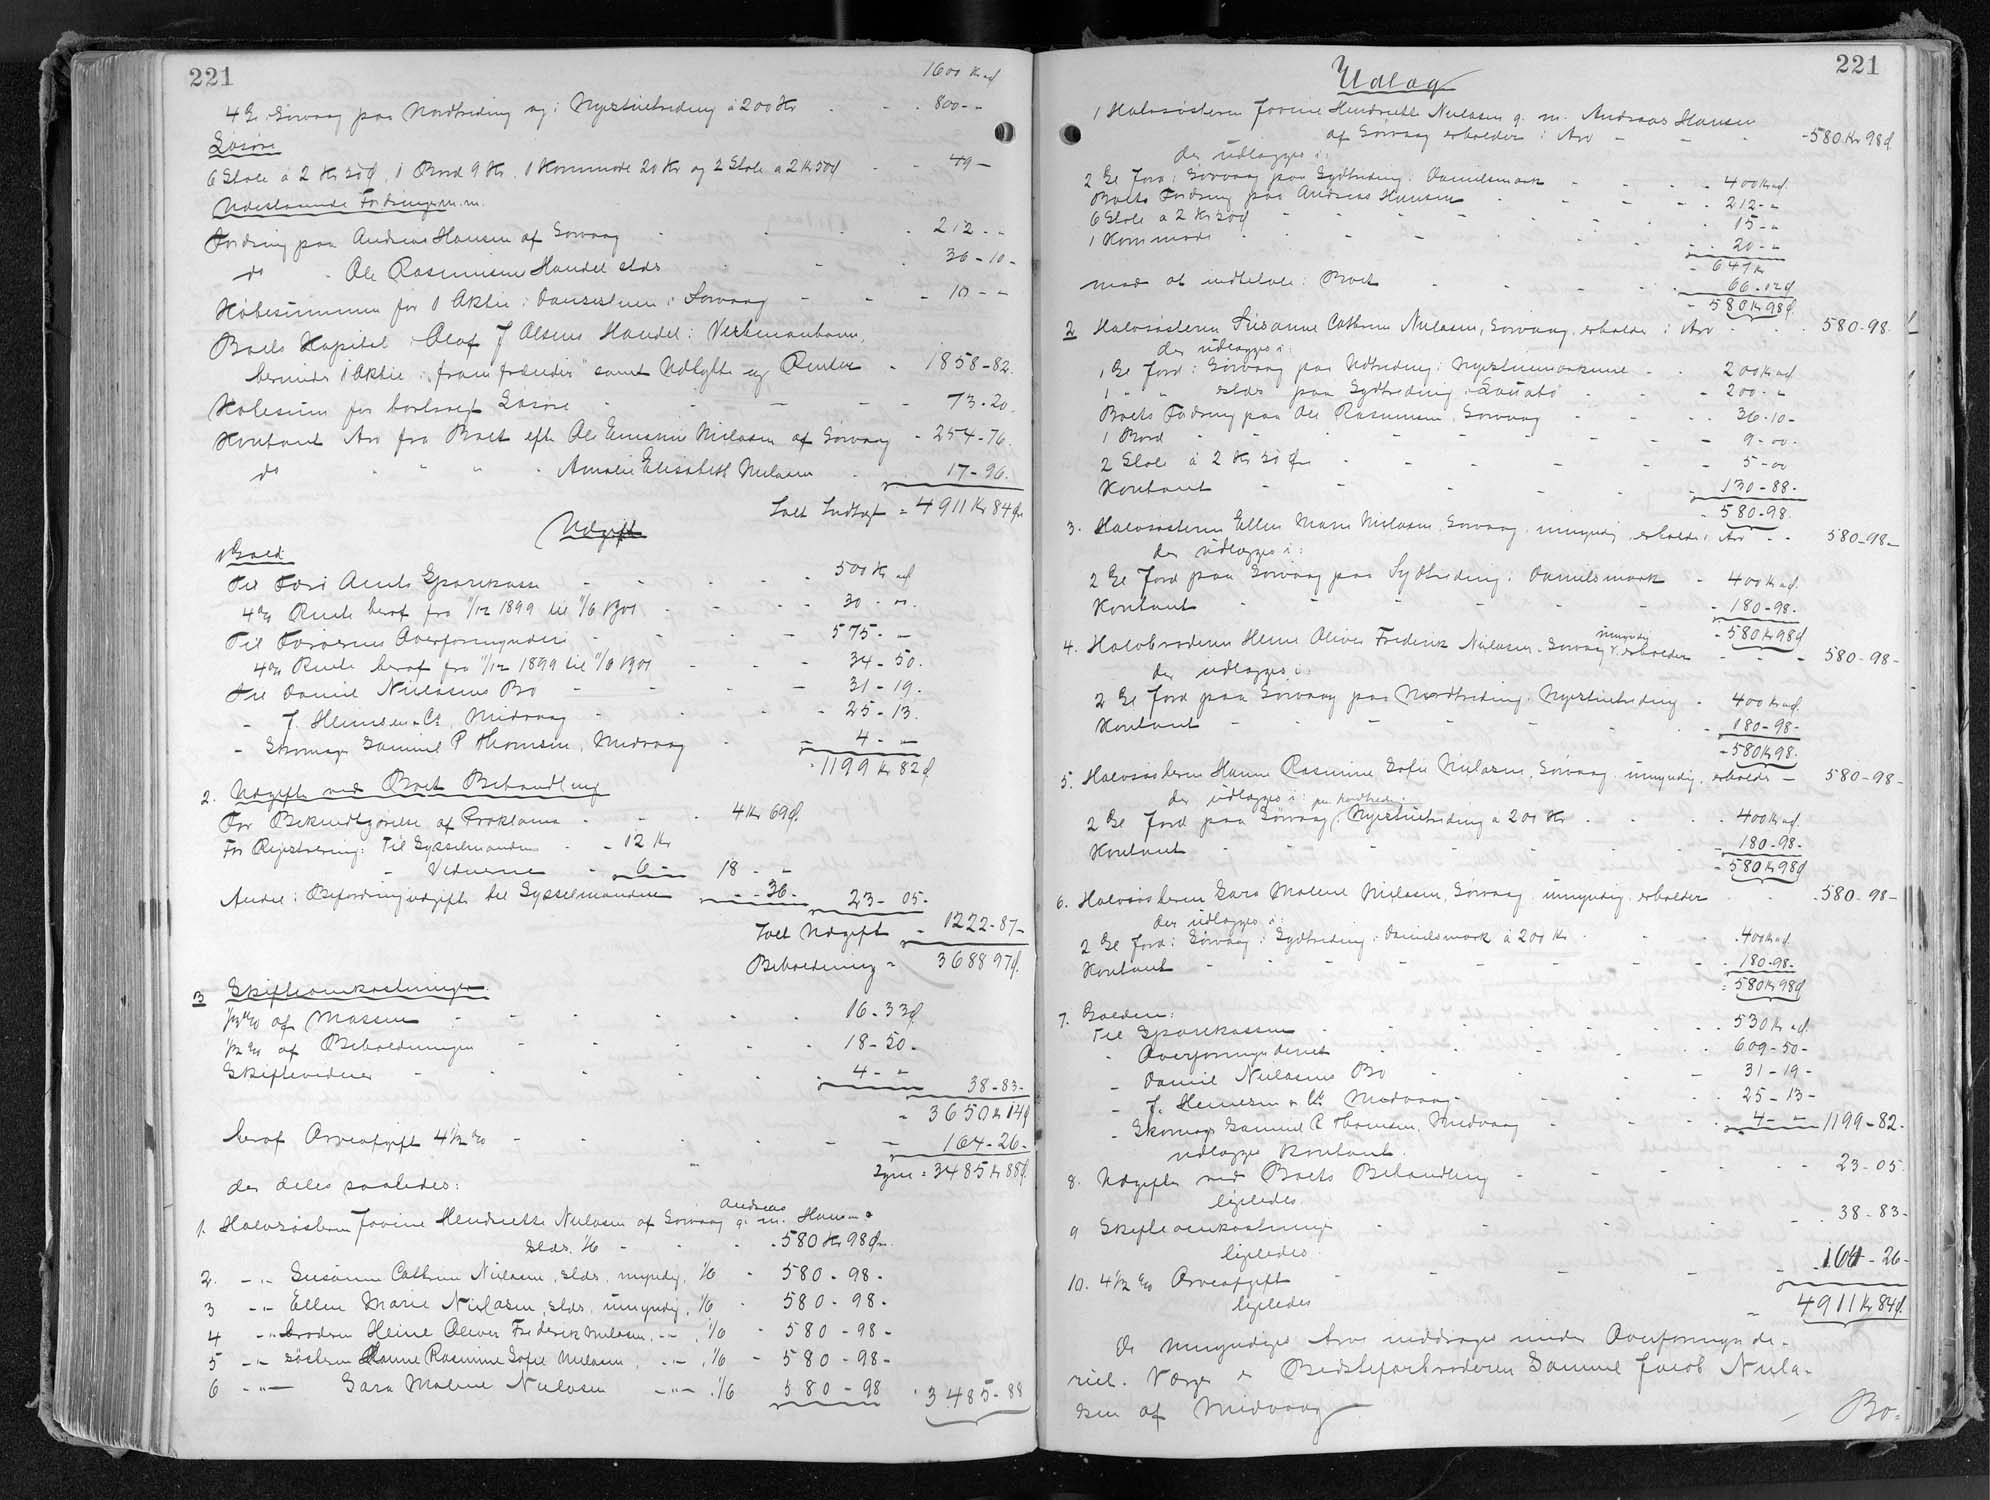 221
1600 Kr ad
4 Gl i Sörvaag paa Nordtreding og i Nyestuetreding à 200 Kr - - 800 - -
Lösöre
6 Stole à 2 Kr 50 ø, 1 Bord 9 Kr, 1 Kommode 20 Kr og 2 Stole a 2 Kr 50 ø - - 49 -
Udestaaende Fordringer m.m.
Fordring paa Andreas Hansen af Sörvaag - - - 212 - -
do - Ole Rasmussen Handel slds - - 36 - 10 -
Köbesummen for 1 Aktie i Dansestuen i Sörvaag - - - 10 - -
Boets Kapital i Olaf J Olsens Handel i Vestmanhavn,
herunder 1 Aktie i "Framtraider" samt Udbytte og Renter - 1858 - 82.
Kobesum for bortsolgt Lösöre - - - - - 73 - 20.
Kontant Arv fra Boet efter Ole Nielasen af Sörvaag - 254 - 76.
do " " " - Amalie Elisabeth Nielasen - 17 - 96.
Ialt Indtægt = 4911 Kr 84 ø
Udgift
1 Gæld
Til Færö Amts Sparekasse - - - - 500 Kr ad
4% Rente heraf fra 11/12 1899 til 11/6 1901 - - - 30 - 00.
Til Færöernes Overformynderi - - - 575 - -
4% Rente heraf fra 11/12 1899 til 11/6 1901 - - - 34 - 50.
Til Daniel Nielasens Bo - - - 31 - 19.
- J. Heinesen & Co, Midvaag - - - 25 - 13.
- Skomager Samuel P Thomsen, Midvaag - - 4 - -
- 1199 Kr 82 ø
2. Udgifter ved Boets Behandling
For Bekendtgörelse af Proklama - - - 4 Kr 69 ø.
For Registrering: Til Sysselmanden - - 12 Kr
- Vidnerne - 6 - 18 - -
Andel i Befordringsudgift til Sysselmanden - - 36 - 23 - 05 -
Ialt Udgift - 1222 - 87 -
Beholdning = 3688 97 ø.
3 Skifteomkostninger.
1/3 % af Massen - - - - 16 - 33 ø
1/2 % af Beholdningen - - - - 18 - 50 -
Skiftevidner - - - - 4 - - 38 - 83 -
- 3650 Kr 14 ø
heraf Arveafgift 4 1/2 % - - - - 164 - 26 -
Igen = 3485 Kr 88 ø
der deles saaledes:
1. Halvsösteren Jovine Henriette Nielasen af Sörvaag g. m. Andreas Hansen
slds. 1/6 - - - 580 Kr 98 ø
2. - " - Susanne Cathrine Nielasen, slds, myndig, 1/6 - 580 - 98 -
3 - " - Ellen Marie Nielasen, slds, umyndig, 1/6 - 580 - 98 -
4 - " - broderen Heine Oliver Frederik Nielasen, - " - , 1/6 - 580 - 98 -
5 - " - sösteren Hanne Rasmine Sofie Nielasen, - " - , 1/6 - 580 - 98 -
6 - " - Sara Malene Nielasen - " - , 1/6 580 - 98 3485 - 88
221
Udlag
1 Halvsösteren Jovine Hendriette Nielasen g. m. Andreas Hansen
af Sörvaag erholder i Arv - - - 580 Kr 98 ø
der udlægges i:
2 Gl Jord i Sörvaag paa Sydtreding i Danielsmark - - - - 400 Kr ad.
Boets Fordring paa Andreas Hansen - - - - 212 - -
6 Stole a 2 Kr 50 ø - - - - 15 - -
1 Kommode - - - - 20 - -
- 647 Kr
mod at indbetale i Boet - - - - 66 - 02 ø
- 580 Kr 98 ø
2 Halvsösteren Susanne Cathrine Nielasen, Sörvaag, erholder i Arv - - 580 - 98.
der udlægges i:
1 Gl Jord i Sörvaag paa Ndtreding i Nyestuemarkerne - - 200 Kr ad
1 - " slds paa Sydtreding - - - 200 - -
Boets Fordring paa Ole Rasmussen, Sörvaag - - - 36 - 10 -
1 Bord - - - - 9 - 00 -
2 Stole à 2 Kr 50 Øre - - - - 5 - 00
Kontant - - - - 130 - 88 -
- 580 - 98.
3. Halvsösteren Ellen Marie Nielasen, Sörvaag, umyndig, erholder i Arv - - 580 - 98 -
der udlægges i:
2 Gl Jord paa Sörvaag paa Sydtreding i Danielsmark - 400 Kr ad.
Kontant - - - - 180 - 98 -
- 580 Kr 98 ø
4. Halvbroderen Heine Oliver Frederik Nielasen, Sörvaag umyndig erholder - - - 580 - 98 -
der udlægges i:
2 Gl Jord paa Sörvaag paa Nordtreding i Nyestuetreding - 400 Kr ad.
Kontant - - - - 180 - 98 -
- 580 Kr 98.
5. Halvsösteren Hanne Rasmine Sofie Nielasen, Sörvaag, umyndig, erholder - 580 - 98 -
der udlægges i:
2 Gl Jord paa Sörvaag paa Nordtreding i Nyestuetreding à 200 Kr - - 400 Kr ad.
Kontant - - - - 180 - 98 -
- 580 Kr 98 ø
6. Halvsösteren Sara Malene Nielasen, Sörvaag, umyndig, erholder - - 580 - 98 -
der udlægges i:
2 Gl Jord i Sörvaag i Sydtreding i Danielsmark à 200 Kr - - 400 Kr ad.
Kontant - - - - 180 - 98 -
- 580 Kr 98 ø
7. Gælden:
Til Sparekassen - - - - 530 Kr ad.
- Overformynderiet - - - - 609 - 50 -
- Daniel Nielasens Bo - - - 31 - 19 -
- J. Heinesen & Co. Midvaag - - - 25 - 13 -
- Skomager Samuel P Thomsen, Midvaag - - - 4 - - 1199 - 82.
udlægges kontant.
8. Udgifter ved Boets Behandling - - - - 23 - 05.
ligeledes
9 Skifteomkostninger - - - - 38 - 83 -
ligeledes.
10. 4 1/2 % Arveafgift - - - - 164 - 26 -
ligeledes
- 4911 Kr 84 ø
De Umyndiges Arv inddrages under Overformynde-
riet. Værge er Bedstefarbroderen Samuel Jacob Niela-
sen af Midvaag
- Bo-